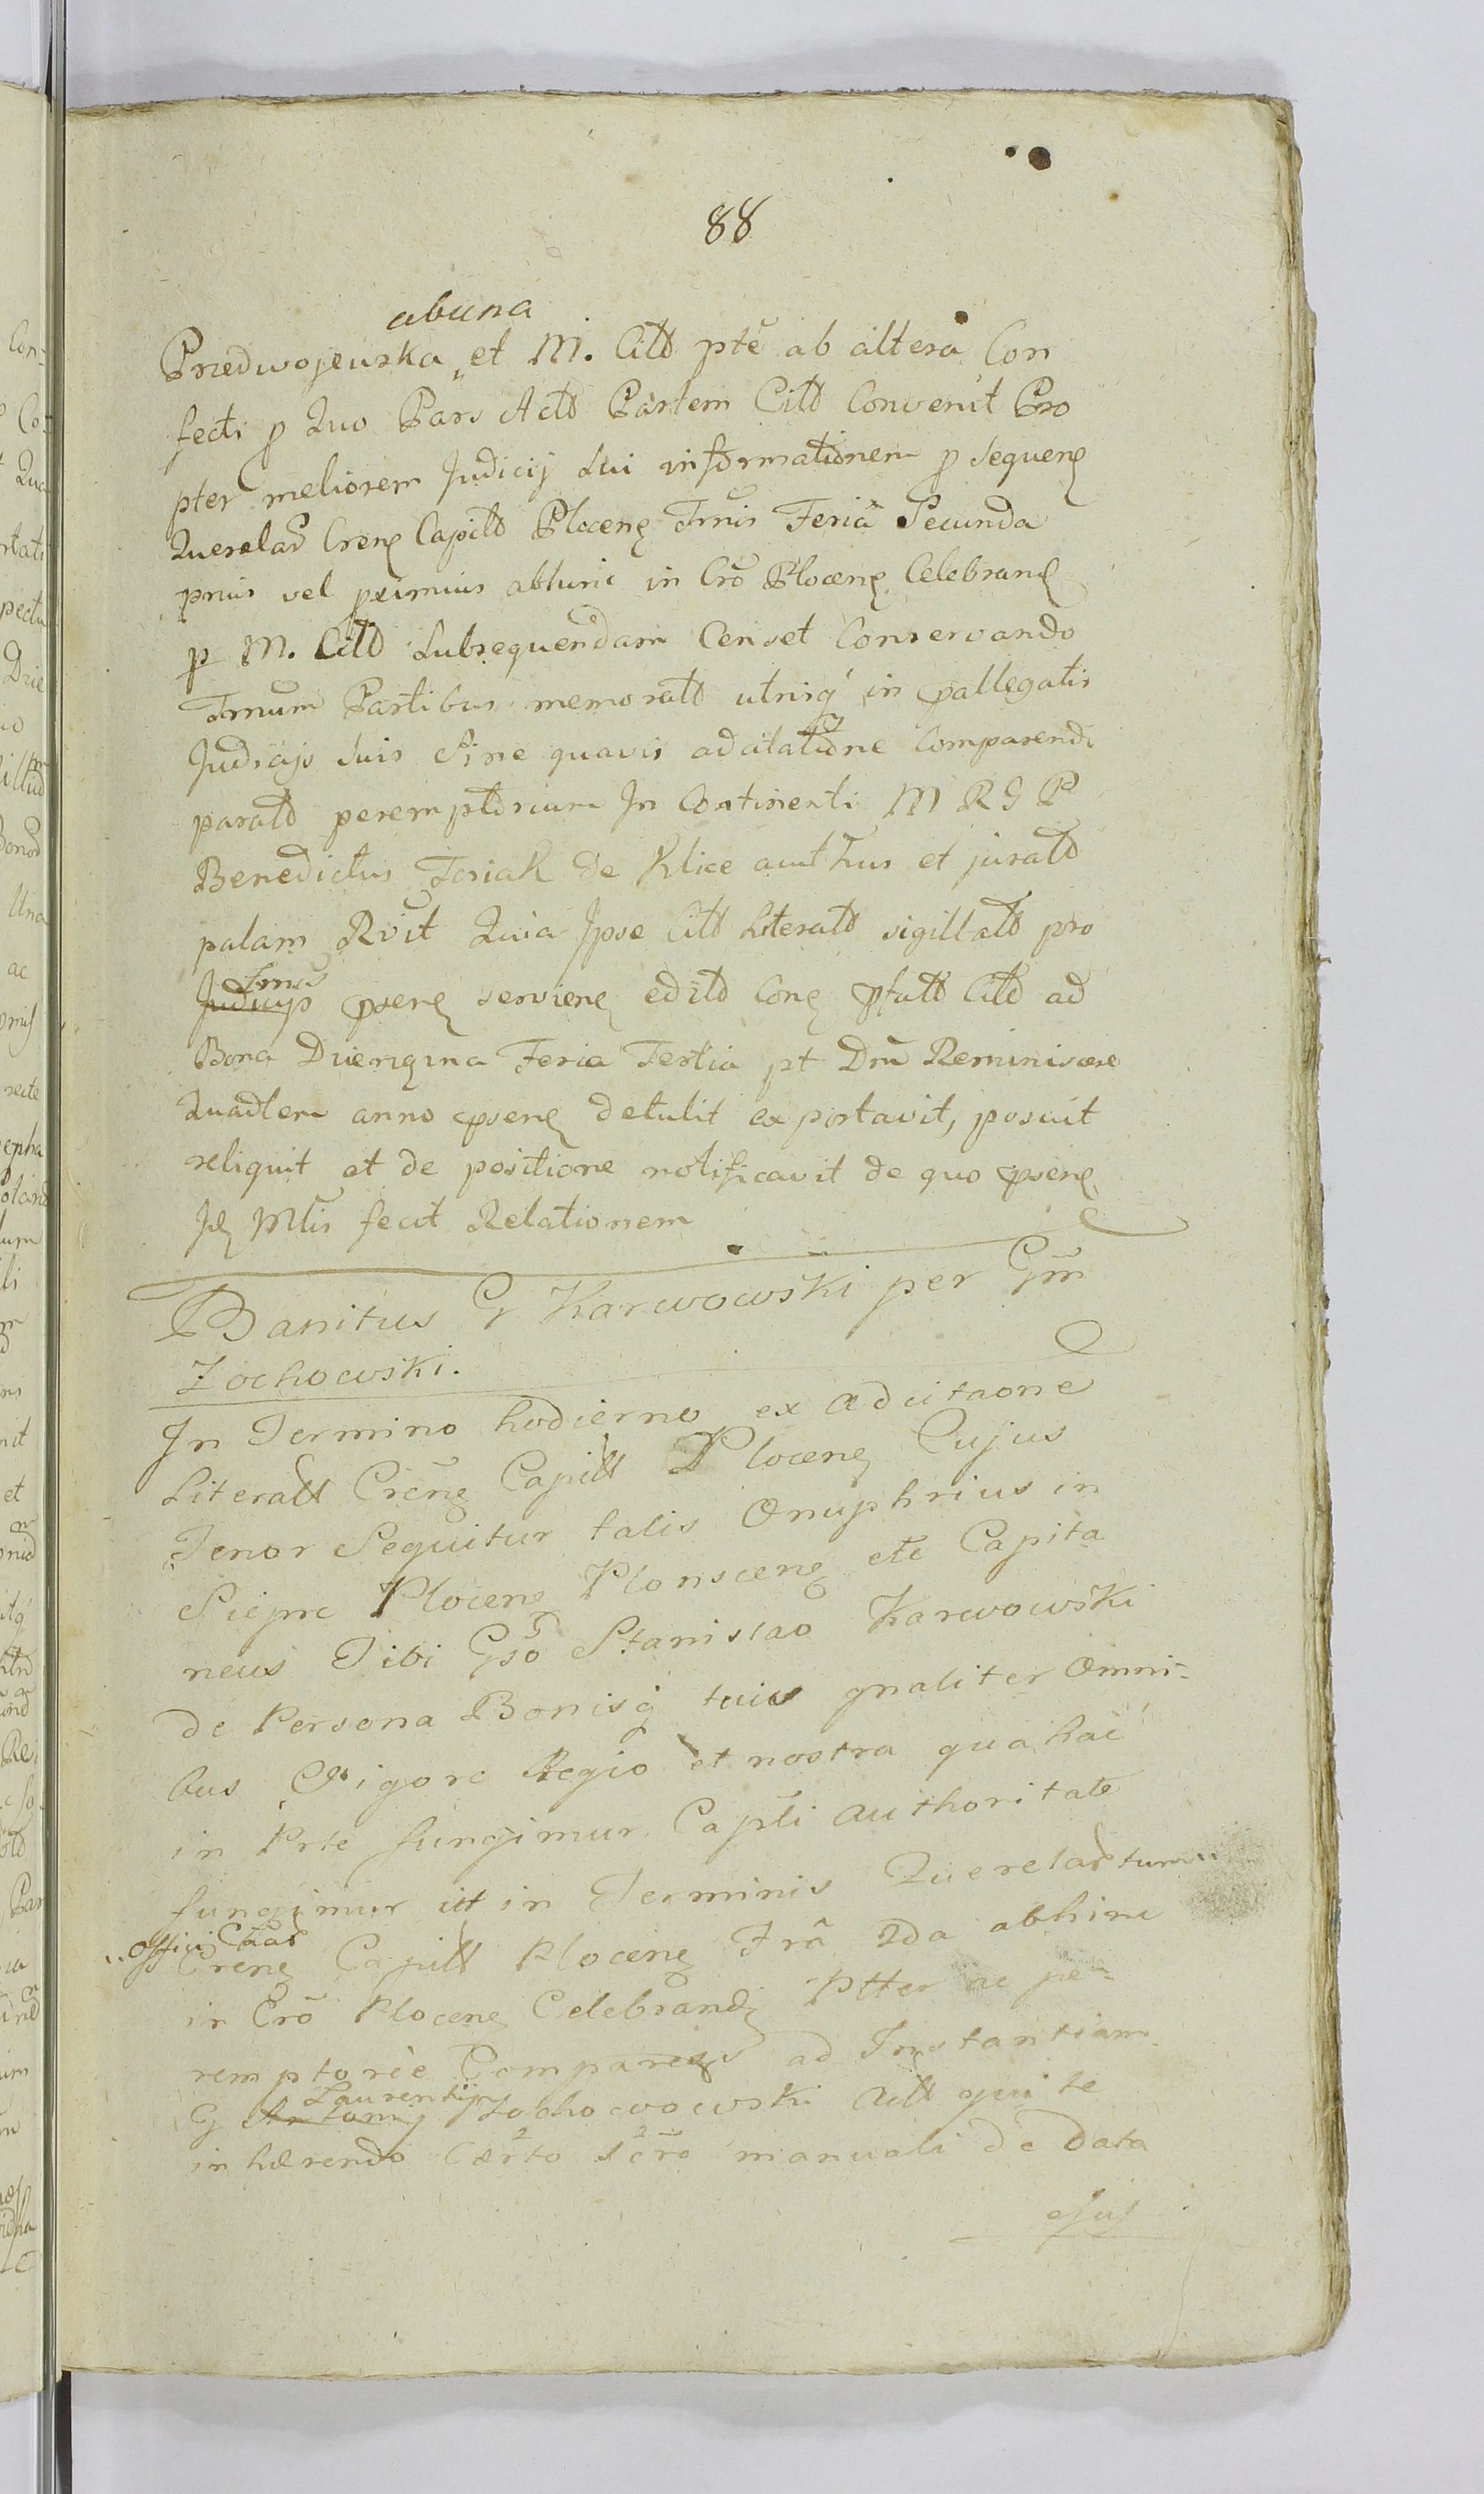 88
abuna
Przedwojewska et M. Citd ptē ab altera Con
fecti p Quo Pars Actd Partem Citd Convenit Pro
pter meliorem Judicij Sui informationem p sequenς
Querelar Crenς Capitd Plocenς Trnis Feria Secunda
prius vel proximius abhinc in Cro Plocenς Celebranς
p M. Citd Subsequendam Censet Conservando
Trnum Partibus memoratd utrisq in pallegatis
Judicijs Suis Sine quavis adcitatione Comparendi
paratd peremptorium In Continenti M R G P
Benedictus Toriak de Klice authus et juratd
palam Rvit Quia Ipse Citd Literatd sigillatd pro
Trnis
Judicijs psenς servienς editd Conς pfatd Citd ad
Bona Dzierzązna Feria Tertia pt Drn Reminiscere
Quadlem anno psenς detulit exportavit, posuit
reliquit et de positione notificavit de quo psenς
Jς Mtis fecit Relationem
Banitus G Karwowski per Gm
Zochowski.
In Termino hodierno ex adcitaone
Literatt Crenς Capitt Plocenς Cujus
Tenor Sequitur talis Onuphrius in
Sieprc Plocenς Plonscenς etc Capita
neus Tibi Gso Stanislao Karwowski
de Persona Bonisq tuis gnaliter Omni-
bus Vigore Regio et nostra qua hac
in Prte fungimur Capti authoritate
fungimur ut in Terminis Querelar tum
Offici
Crenς Capitt Plocenς Fra 2da abhinc
in Cro Plocenς Celebrandς Ptter ac pe-
remptorie Compareas ad Instantiam
Laurentij
G Antonij Zochowowski Actt qui te
inhærendo Cærto Scro manuali de Data
ejus